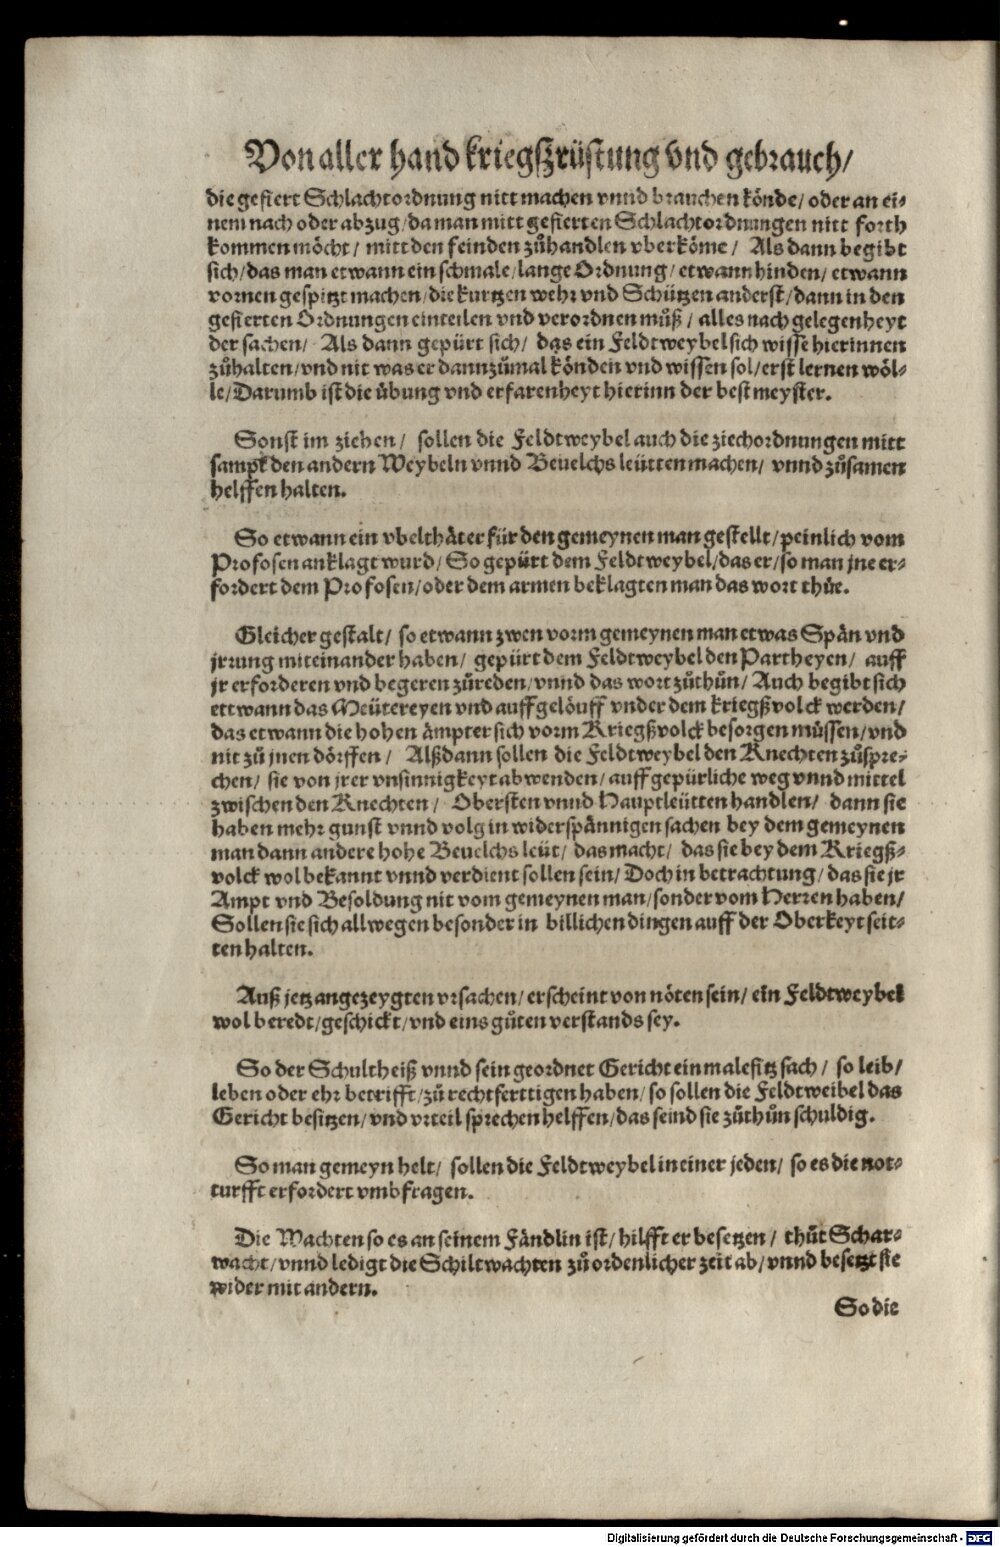 Von aller hand kriegßrüstung vnd gebrauch/
die gefiert Schlachtordnung nitt machen vnnd brauchen könde/ oder an ei-
nem nach oder abzug/ da man mitt gefierten Schlachtordnungen nitt forth
kommen möcht/ mitt den feinden zůhandlen vberköme/ Als dann begibt
sich/ das man etwann ein schmale/ lange Ordnung/ etwann hinden/ etwann
vornen gespitzt machen/ die kurtzen wehr vnd Schützen anderst/ dann in den
gefierten Ordnungen einteilen vnd verordnen můß/ alles nach gelegenheyt
der sachen/ Als dann gepürt sich/ das ein Feldtweybel sich wisse hierinnen
zůhalten/ vnd nit was er dannzůmal könden vnd wissen sol/ erst lernen wöl-
le/ Darumb ist die übung vnd erfarenheyt hierinn der best meyster.
Sonst im ziehen/ sollen die Feldtweybel auch die ziechordnungen mitt
sampt den andern Weybeln vnnd Beuelchs leütten machen/ vnnd zůsamen
helffen halten.
So etwann ein vbelthäter für den gemeynen man gestellt/ peinlich vom
Profosen anklagt wurd/ So gepürt dem Feldtweybel/ das er/ so man jne er-
fordert dem Profosen/ oder dem armen beklagten man das wort thüe.
Gleicher gestalt/ so etwann zwen vorm gemeynen man etwas Spän vnd
jrrung miteinander haben/ gepürt dem Feldtweybel den Partheyen/ auff
jr erforderen vnd begeren zůreden/ vnnd das wort zůthůn/ Auch begibt sich
ettwann das Meütereyen vnd auffgelöuff vnder dem kriegßvolck werden/
das etwann die hohen ämpter sich vorm Kriegßvolck besorgen müssen/ vnd
nit zů jnen dörffen/ Alßdann sollen die Feldtweybel den Knechten zůspre-
chen/ sie von jrer vnsinnigkeyt abwenden/ auff gepürliche weg vnnd mittel
zwischen den Knechten/ Obersten vnnd Hauptleütten handlen/ dann sie
haben mehr gunst vnnd volg in widerspännigen sachen bey dem gemeynen
man dann andere hohe Beuelchs leüt/ das macht/ das sie bey dem Kriegß-
volck wol bekannt vnnd verdient sollen sein/ Doch in betrachtung/ das sie jr
Ampt vnd Besoldung nit vom gemeynen man/ sonder vom Herren haben/
Sollen sie sich allwegen besonder in billichen dingen auff der Oberkeyt seit-
ten halten.
Auß jetz angezeygten vrsachen/ erscheint von nöten sein/ ein Feldtweybel
wol beredt/ geschickt/ vnd eins gůten verstands sey.
So der Schultheiß vnnd sein geordnet Gericht ein malefitz sach/ so leib/
leben oder ehr betrifft/ zů rechtferttigen haben/ so sollen die Feldtweibel das
Gericht besitzen/ vnd vrteil sprechen helffen/ das seind sie zůthůn schuldig.
So man gemeyn helt/ sollen die Feldtweybel in einer jeden/ so es die not-
turfft erfordert vmbfragen.
Die Wachten so es an seinem Fändlin ist/ hilfft er besetzen/ thůt Schar-
wacht/ vnnd ledigt die Schiltwachten zů ordenlicher zeit ab/ vnnd besetzt sie
wider mit andern.
So die
Digitalisierung gefördert durch die Deutsche Forschungsgemeinschaft - DFG